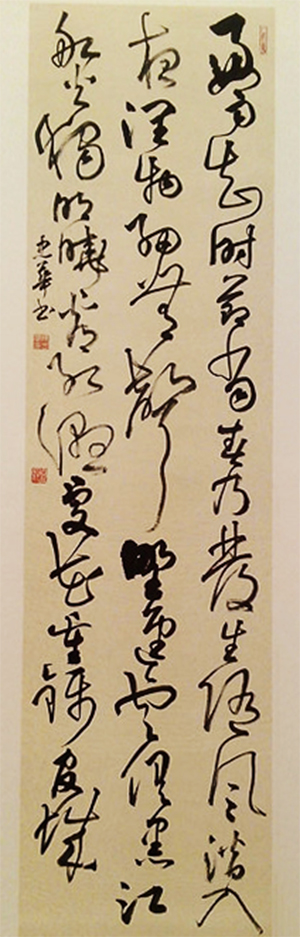 好雨知时节当春乃发生随风潜入
夜润物细无声野径云俱黑江
船火独明晓看红湿处花重锦官城